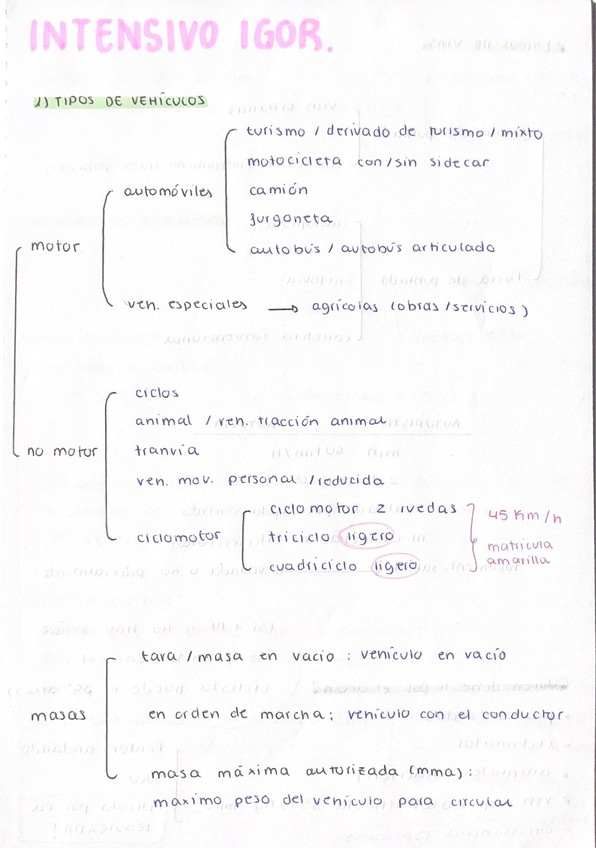 INTENSIVO IGOR.
1) TIPOS DE VEHÍCULOS
motor
automóviles
turismo / derivado de turismo / mixto
motocicleta con/sin sidecar
camión
furgoneta
autobús / autobús articulado
veh. especiales → agrícolas (obras/servicios)
no motor
ciclos
animal / veh. tracción animal
tranvía
veh. mov. personal / reducida
ciclomotor
ciclo motor 2 ruedas
triciclo ligero
cuadriciclo ligero
45 Km/h
matrícula
amarilla
masas
tara/masa en vacio: vehículo en vacío
en orden de marcha: vehículo con el conductor
masa máxima autorizada (mma):
máximo peso del vehículo para circular